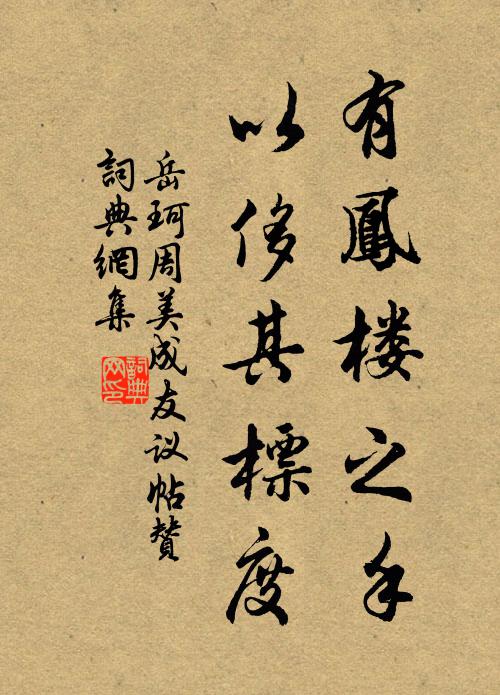 有鳳楼之手
以侈其標度
岳珂周美成友议帖贊
詞典網集
詞典網印